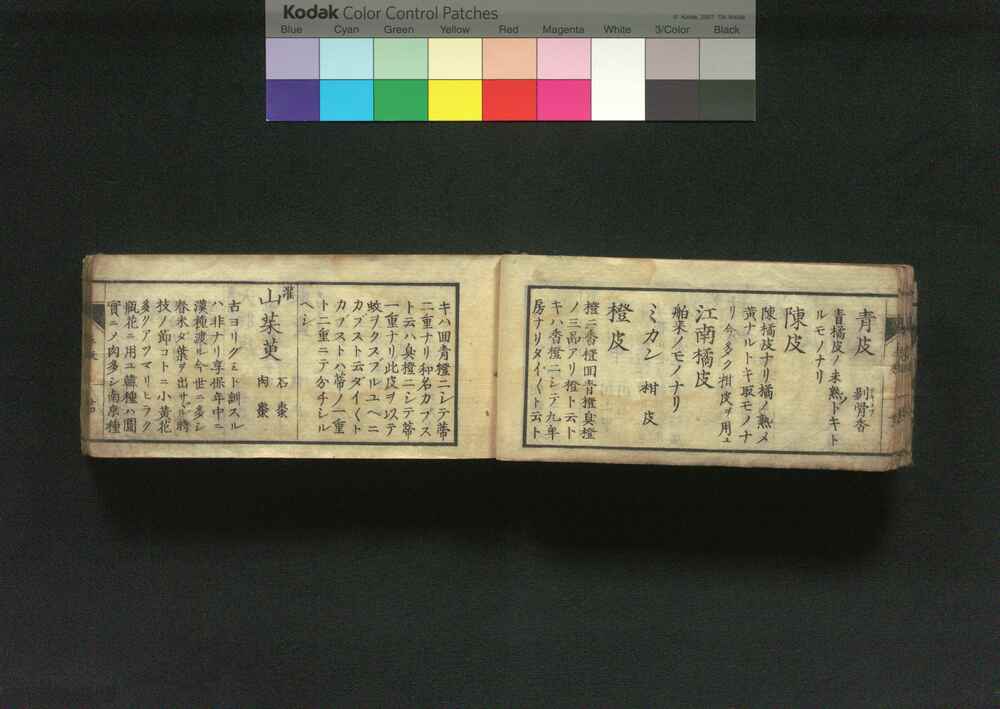 Kodak Color Control Patches
© Kodak, 2007 TM: Kodak
Blue Cyan Green Yellow Red Magenta White 3/Color Black
青皮 剥骨香
青橘皮ノ未熟トキト
ルモノナリ
陳皮
陳橘皮ナリ橘ノ熟メ
黄ナルトキ取モノナ
リ今多ク柑皮ヲ用ユ
江南橘皮
舶来ノモノナリ
ミカン 柑皮
橙皮
橙ニ香橙回青橙臭橙
ノ三品アリ橙ト云ト
キハ香橙ニシテ九年
房ナリタイ〱ト云ト
キハ回青橙ニシテ蒂
二重ナリ和名カブス
ト云ハ臭橙ニシテ蒂
一重ナリ此皮ヲ以テ
蚊ヲクスフルユヘニ
カブスト云ダイ〱ト
カブストハ蒂ノ一重
ト二重ニテ分チシル
ヘシ
灌
山茱萸 石棗 肉棗
古ヨリグミト訓スル
ハ非ナリ享保年中ニ
漢種渡ル今世ニ多シ
春末タ葉ヲ出サル時
技ノ節コトニ小黄花
多クアツマリヒラク
瓶花ニ用ユ韓種ハ圓
實ニノ肉多シ南京種